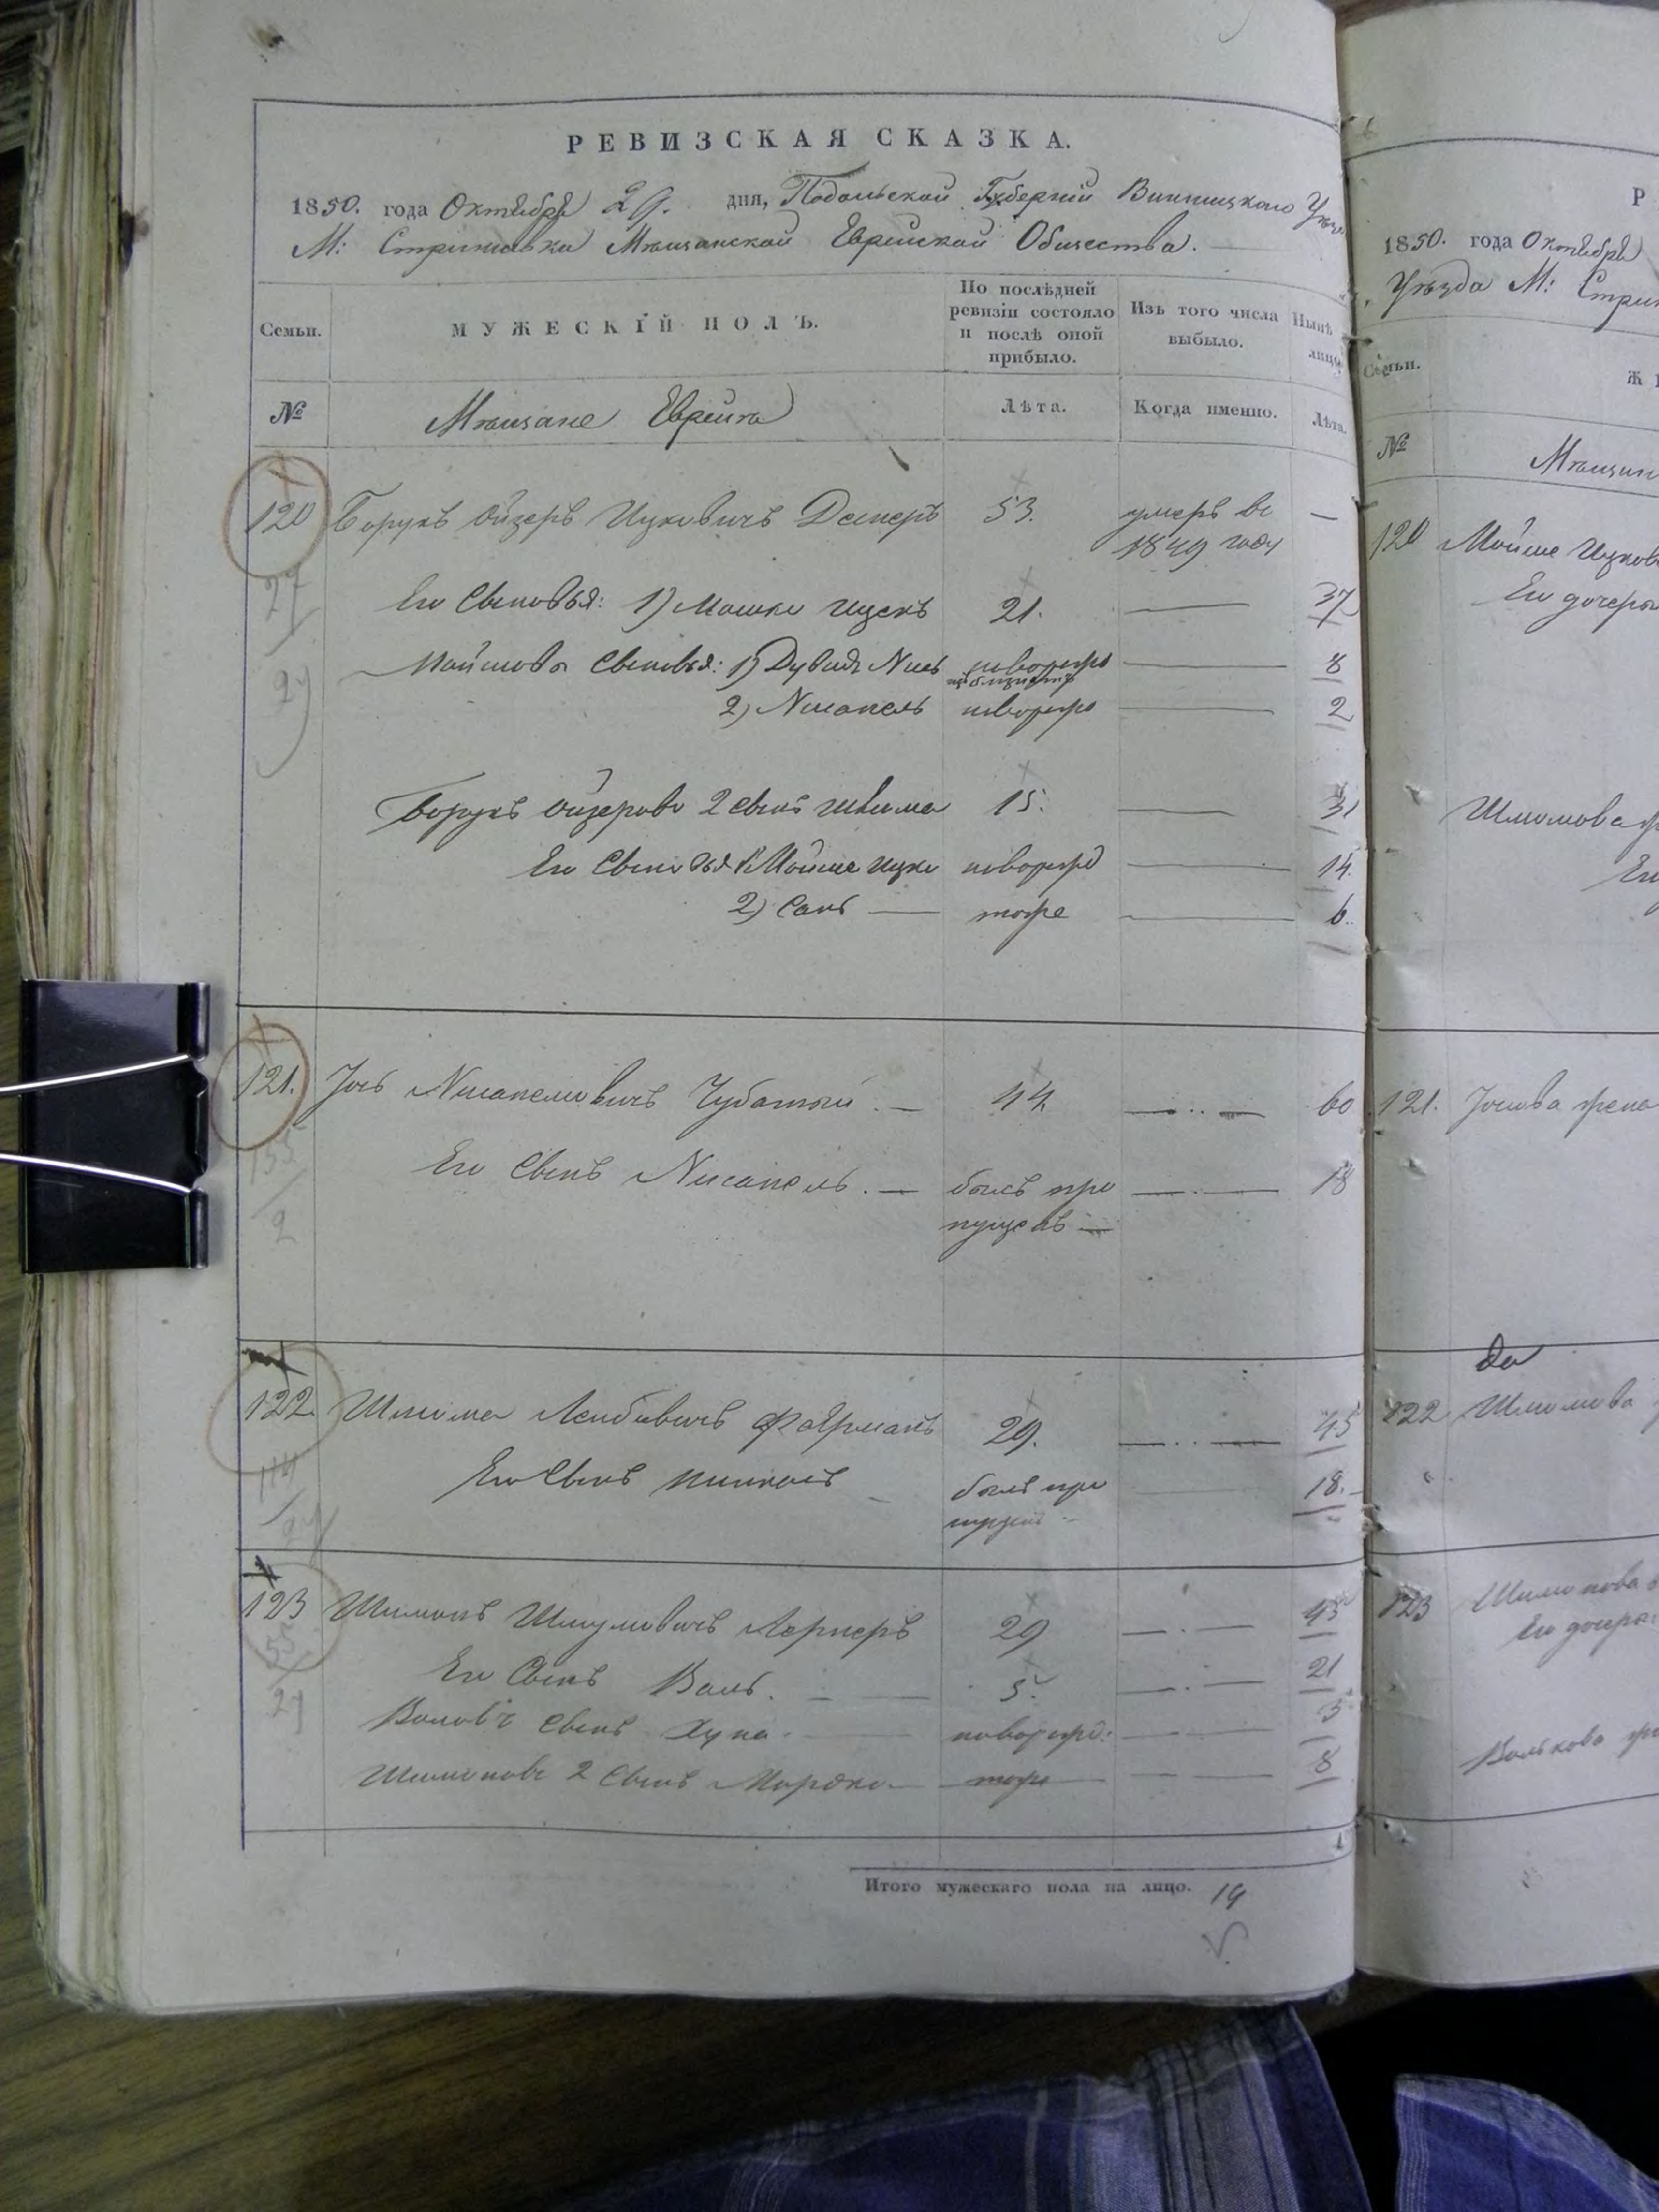 РЕВИЗСКАЯ СКАЗКА.
1850. года Октября 29. дня, Подольской Губернии Винницкого Уезда
М: Стрижавки Мѣщанской Еврейской Общества.
Семьи.
МУЖЕСКІЙ ПОЛЪ.
По послѣдней ревизіи состояло и послѣ оной прибыло.
Изъ того числа выбыло.
Нынѣ на лицо
№ Мѣщане Евреи Лѣта. Когда именно. Лѣта.
120 Борухъ Ойзеръ Ицковичъ 53. умеръ въ —
1849 году
27
Его Сыновья: 1) Мошко Ицекъ 21. — 37
27
Мошкова Сыновья: 1) Дувидъ новорожд — 8
2) Нисанель новорожд — 2
Борухъ Ойзерова 2 сынъ Шлиома 15. — 31
Его Сыновья 1) Мойше Ицко новорожд — 14.
2) Санѣ — тоже — 6.
121. Іось Нисанелиовичъ Чубатый. — 44 — 60
155
2
Его Сынъ Нисанель. — былъ про — 18
пущенъ —
122. Шлиома Лейбовичъ Фаерманъ 29. — 45
Его Сынъ былъ про — 18.
пущенъ
123 Шимонъ Шмулиовичъ Лернеръ 29 — 45
55
27
Его Сынъ Воль. — 5. — 21
Вольовъ Сынъ Хуна — новорожд: — 3
Шимонова 2 Сынъ Мордко — тоже — 8
Итого мужескаго пола на лицо. 14
1850. года Октября
Уѣзда М:
Семьи.
№
120 Мойше
Его дочери
Шлиомова
121. Іосіова жена
122 Шлиомова
123 Шимонова
Его дочери
Волькова